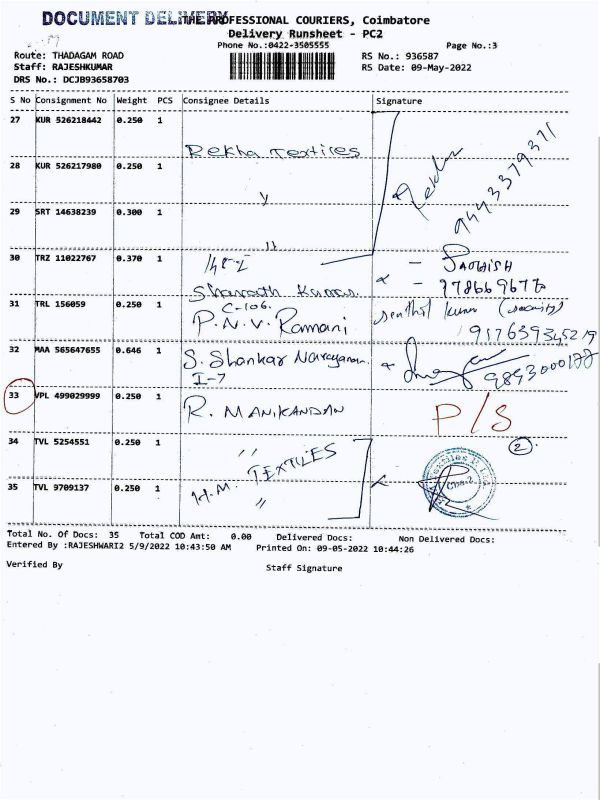 DOCUMENT DELIVERY THE PROFESSIONAL COURIERS, Coimbatore
Delivery Runsheet - PC2
Phone No.:0422-3505555 Page No.:3
Route: THADAGAM ROAD RS No.: 936587
Staff: RAJESHKUMAR RS Date: 09-May-2022
DRS No.: DCJB93658703
S No Consignment No Weight PCS Consignee Details Signature
27 KUR 526218442 0.250 1
Rekha Textiles
Rekha 9443379371
28 KUR 526217980 0.250 1
29 SRT 14638239 0.300 1
30 TRZ 11022767 0.370 1
Sharath Kumar
31 TRL 156059 0.250 1 C-106. Senthil Kumar (security)
P. N. V. Ramani
32 MAA 565647655 0.646 1 S. Shankar Narayanan
I-7
33 VPL 499029999 0.250 1 R. MANIKANDAN P/S
34 TVL 5254551 0.250 1 2
H.M. TEXTILES
35 TVL 9709137 0.250 1
Total No. Of Docs: 35 Total COD Amt: 0.00 Delivered Docs: Non Delivered Docs:
Entered By :RAJESHWARI2 5/9/2022 10:43:50 AM Printed On: 09-05-2022 10:44:26
Verified By Staff Signature